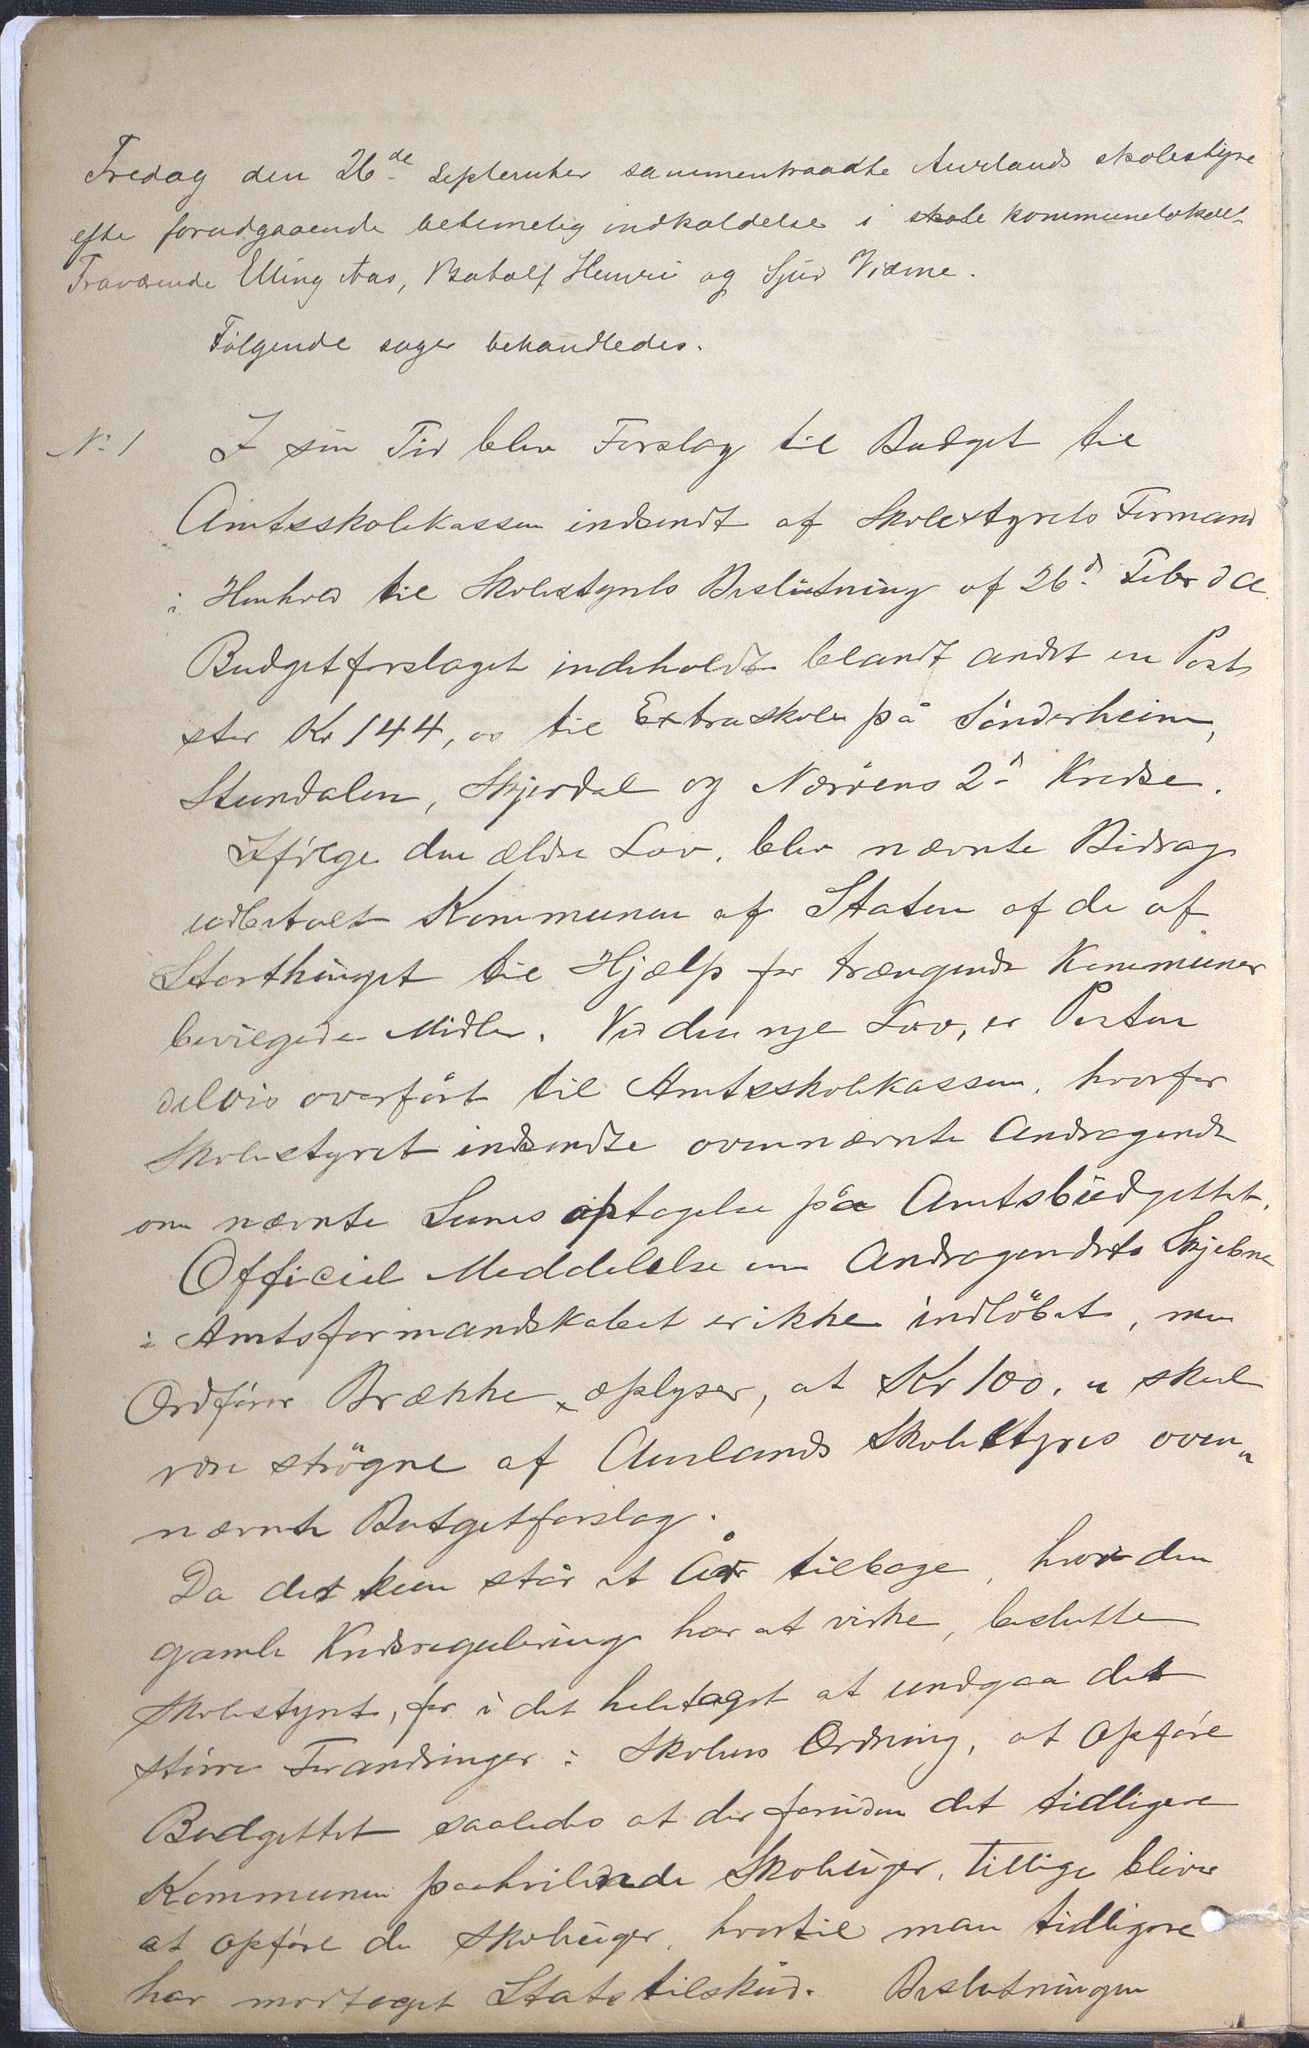 Fredag den 26de September sammentraadte Aurlands skolestyre
efte forudgaaende betimelig indkaldelse i skole kommunelokalet
Fraværende Elling Aas, Botolf Henrei og Sjur Vidme.
Følgende sager behandledes.
No 1 I sin Tid blev Forslag til Budget til
Amtsskolekassen indsendt af Skolestyrets Formand
i Henhold til Skolestyrets Beslutning af 26d Febr d A.
Budgetforslaget indeholdt blandt andet en Post
stor Kr 144, oo til Extraskole på Sønderheim,
Stundalen, Skjerdal og Nærøens 2d Kredse.
Ifølge den ældre Lov, blev nævnte Bidrag
udbetalt Kommunen af Staten af de af
Storthinget til Hjælp for trængende Kommuner
bevilgede Midler. Ved den nye Lov, er Posten
delvis overført til Amtsskolekassen, hvorfor
Skolestyret indsendte ovennævnte Andragende
om nævnte Sums optagelse på Amtsbudgettet.
Officiel Meddelelse om Andragendets Skjebne
i Amtsformandskabet er ikke indløbet, men
Ordfører Brække oplyser, at Kr 100, " skal
være strøgne af Aurlands Skolestyres oven"
nævnte Butgetforslag.
Da det kun står et År tilbage, hvori den
gamle Kredsregulering har at virke, beslutte
Skolestyret, for i det heletaget at undgaa det
større Forandringer i Skolens Ordning, at opføre
Budgettet saaledes at der foruden det tidligere
Kommunen paahvilende Skoleuger, tillige bliver
at opføre de Skoleuger, hvortil man tidligere
har modtaget Statstilskud. Beslutningen